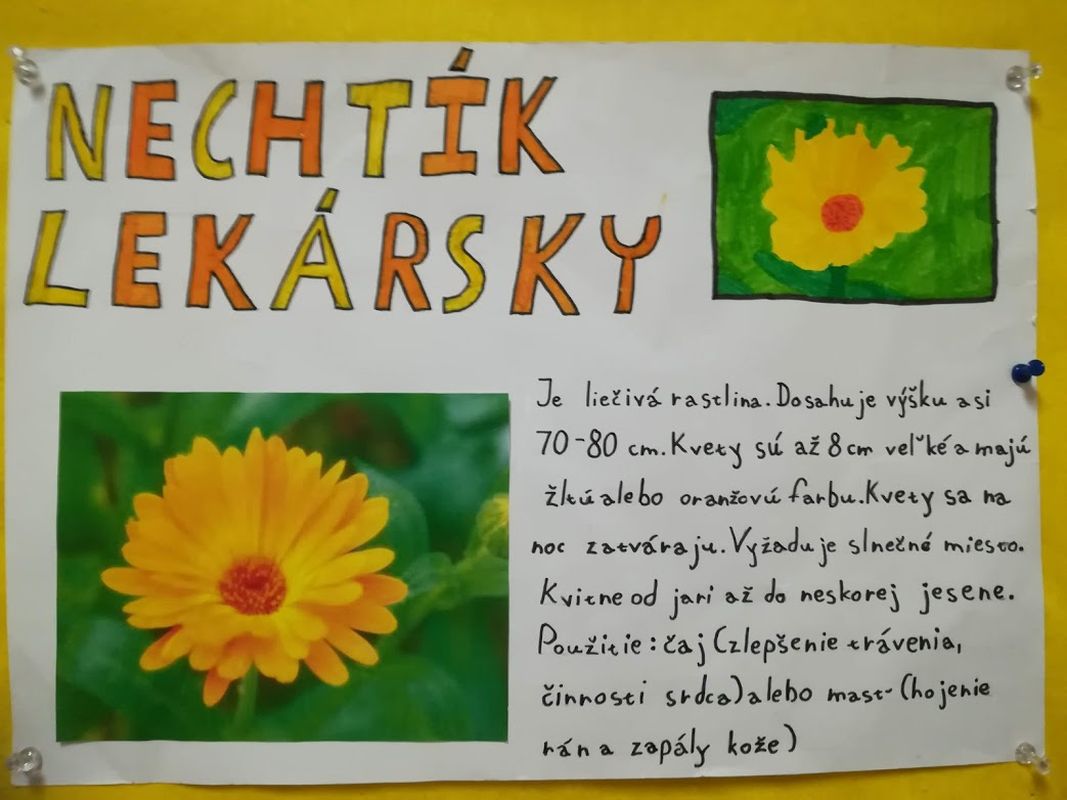 NECHTÍK
LEKÁRSKY
Je liečivá rastlina. Dosahuje výšku asi
70-80 cm. Kvety sú až 8 cm veľké a majú
žltú alebo oranžovú farbu. Kvety sa na
noc zatvárajú. Vyžaduje slnečné miesto.
Kvitne od jari až do neskorej jesene.
Použitie: čaj (zlepšenie trávenia,
činnosti srdca) alebo masť (hojenie
rán a zapály kože)